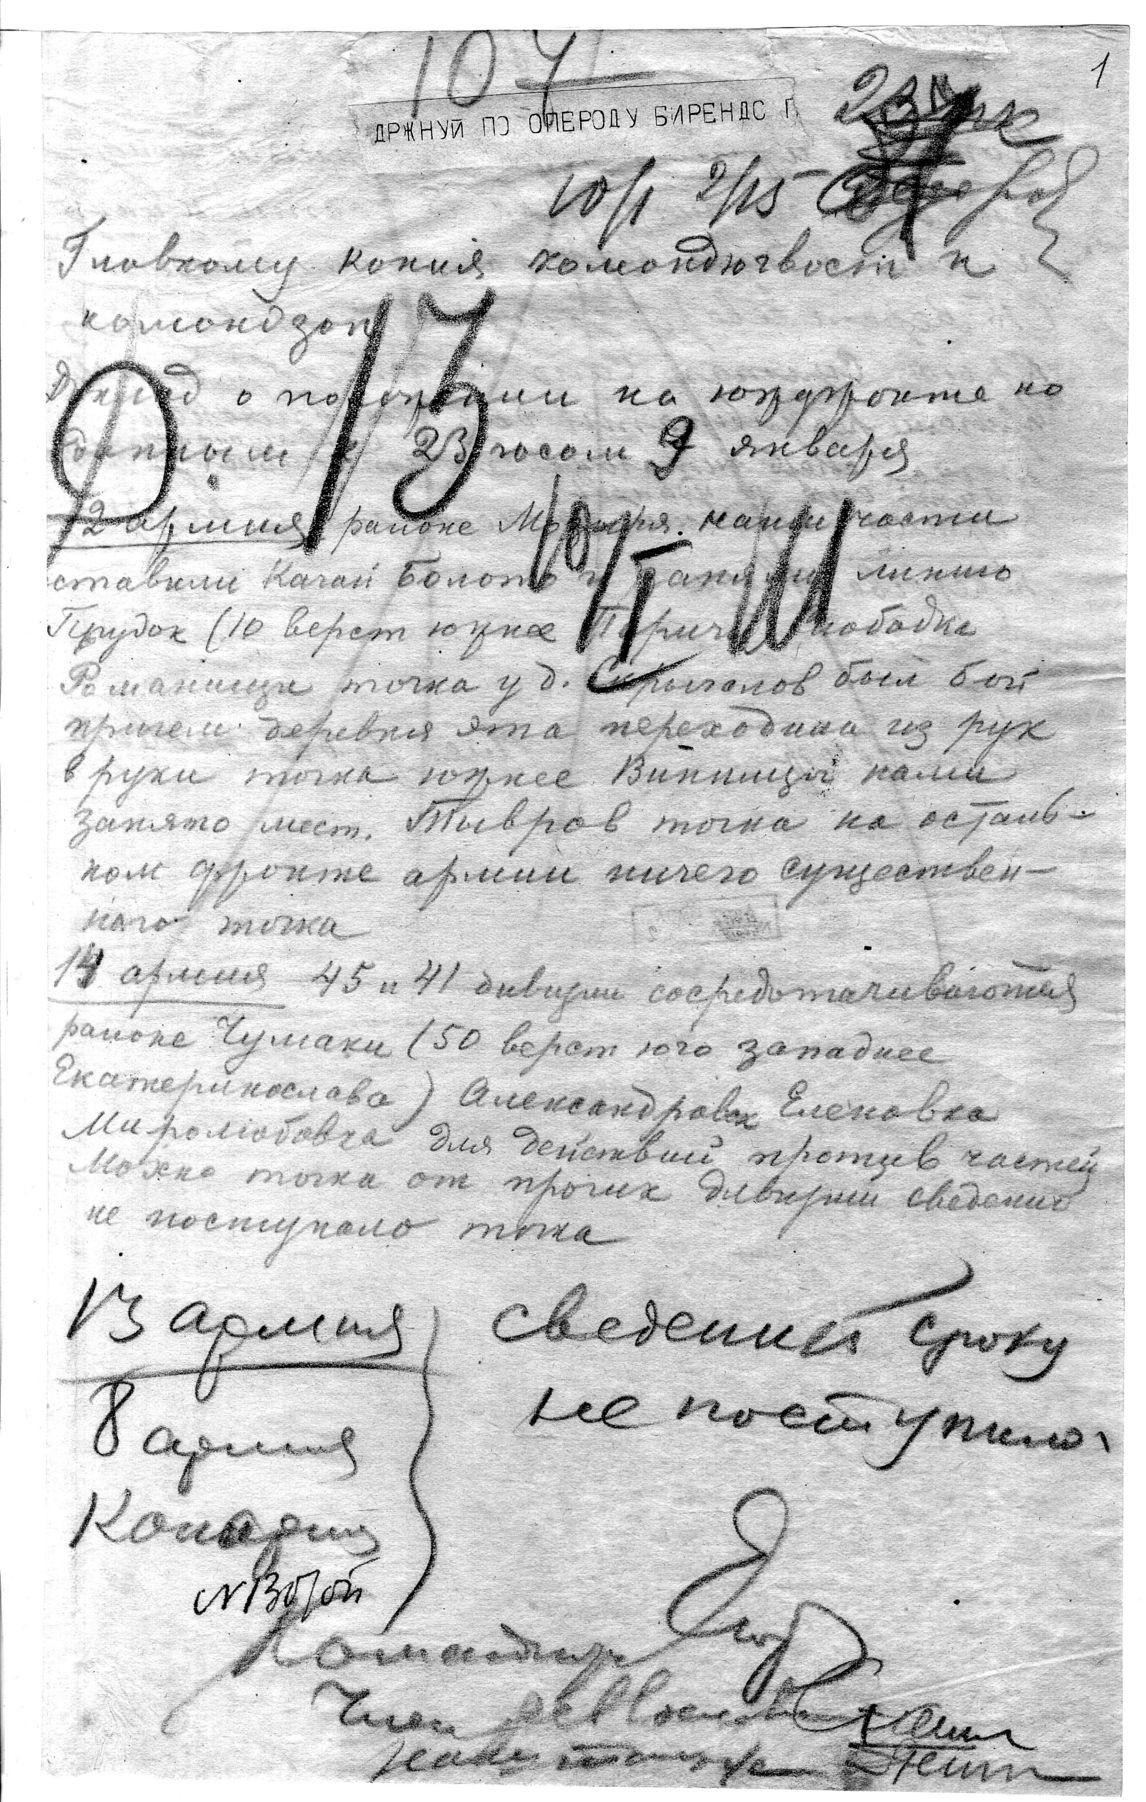 1
104
ДРЖНУЙ ПО ОПЕРОДУ БИРЕНДС Г
10/1 2/15
Главкому копия командючвост и
командзап
Доклад о положении на южфронте по
данным к 23 часам 9 января
13
10/I
12 армия районе Мозыря наши части
оставили Качай Болото и заняли линию
Прудок (10 верст южнее Паричи) Слободка
Романищи точка у д. Скрыгалов был бой
причем деревня эта переходила из рук
в руки точка южнее Винницы нами
занято мест. Тывров точка на осталь-
ном фронте армии ничего существен-
ного точка
14 армия 45 и 41 дивизии сосредотачиваются
районе Чумаки (50 верст юго западнее
Екатеринослава) Александровск Еленовка
Миролюбовка для действий против частей
Махно точка от прочих дивизий сведений
не поступало точка
13 армия сведений сроку
8 армия не поступило.
Конармия
Командюж
Член Реввоенсовета Сталин